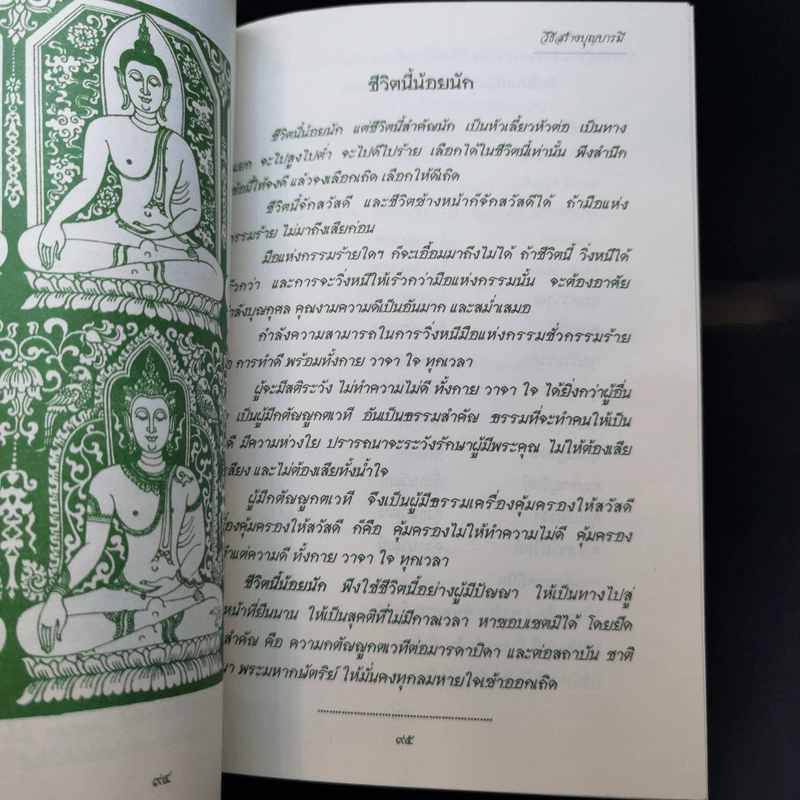 วิธีสร้างบุญบารมี
ชีวิตนี้น้อยนัก
ชีวิตนี้น้อยนัก แต่ชีวิตนี้สำคัญนัก เป็นหัวเลี้ยวหัวต่อ เป็นทาง
แยก จะไปสูงไปต่ำ จะไปดีไปร้าย เลือกได้ในชีวิตนี้เท่านั้น พึงสำนึก
ข้อนี้ให้จงดี แล้วจงเลือกเถิด เลือกให้ดีเถิด
ชีวิตนี้จักสวัสดี และชีวิตข้างหน้าก็จักสวัสดีได้ ถ้ามือแห่ง
กรรมร้าย ไม่มาถึงเสียก่อน
มือแห่งกรรมร้ายใดๆ ก็จะเอื้อมมาถึงไม่ได้ ถ้าชีวิตนี้ วิ่งหนีได้
เร็วกว่า และการจะวิ่งหนีให้เร็วกว่ามือแห่งกรรมนั้น จะต้องอาศัย
กำลังบุญกุศล คุณงามความดีเป็นอันมาก และสม่ำเสมอ
กำลังความสามารถในการวิ่งหนีมือแห่งกรรมชั่วกรรมร้าย
คือ การทำดี พร้อมทั้งกาย วาจา ใจ ทุกเวลา
ผู้จะมีสติระวัง ไม่ทำความไม่ดี ทั้งกาย วาจา ใจ ได้ยิ่งกว่าผู้อื่น
ว่า เป็นผู้มีกตัญญูกตเวที อันเป็นธรรมสำคัญ ธรรมที่จะทำคนให้เป็น
ดี มีความห่วงใย ปรารถนาจะระวังรักษาผู้มีพระคุณ ไม่ให้ต้องเสีย
เสียง และไม่ต้องเสียทั้งน้ำใจ
ผู้มีกตัญญูกตเวที จึงเป็นผู้มีธรรมเครื่องคุ้มครองให้สวัสดี
องคุ้มครองให้สวัสดี ก็คือ คุ้มครองไม่ให้ทำความไม่ดี คุ้มครอง
ำแต่ความดี ทั้งกาย วาจา ใจ ทุกเวลา
ชีวิตนี้น้อยนัก พึงใช้ชีวิตนี้อย่างผู้มีปัญญา ให้เป็นทางไปสู่
หน้าที่ยืนนาน ให้เป็นสุคติที่ไม่มีกาลเวลา หาขอบเขตมิได้ โดยยึด
สำคัญ คือ ความกตัญญูกตเวทีต่อมารดาบิดา และต่อสถาบัน ชาติ
นา พระมหากษัตริย์ ให้มั่นคงทุกลมหายใจเข้าออกเถิด
๙๕
๙๔